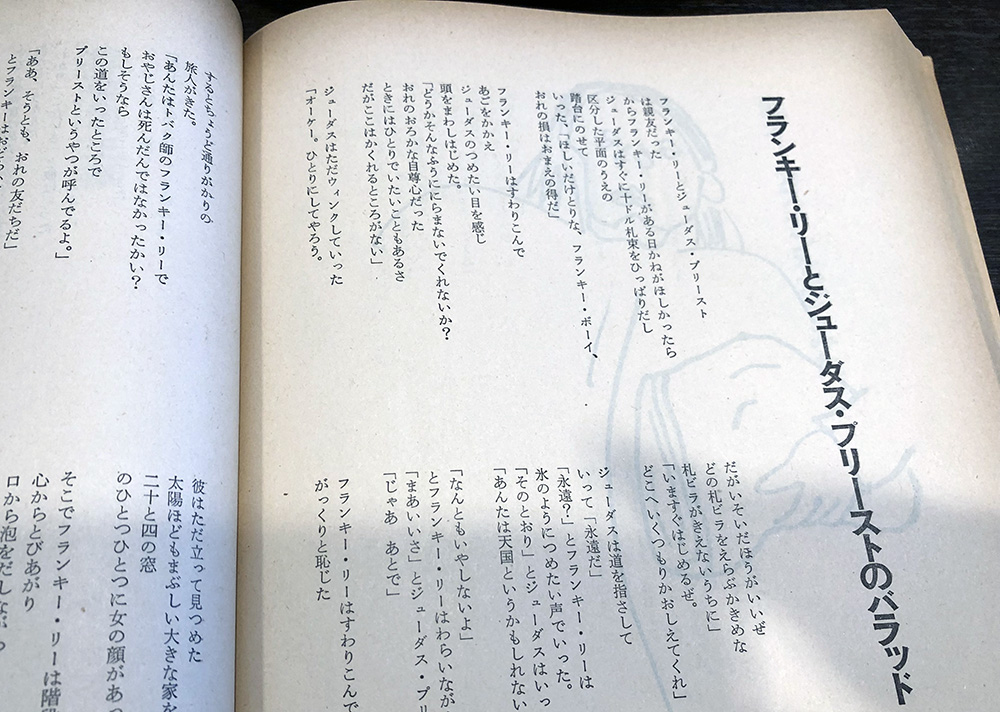 フランキー・リーとジューダス・プリーストのバラッド
フランキー・リーとジューダス・プリースト
は親友だった
からフランキー・リーがある日かねがほしかったら
ジューダスはすぐに十ドル札束をひっぱりだし
区分した平面のうえの
踏台にのせて
いった、「ほしいだけとりな、フランキー・ボーイ、
おれの損はおまえの得だ」
フランキー・リーはすわりこんで
あごをかかえ
ジューダスのつめたい目を感じ
頭をまわしはじめた。
「どうかそんなふうににらまないでくれないか?
おれのおろかな自尊心だった
ときにはひとりでいたいこともあるさ
だがここはかくれるところがない」
ジューダスはただウィンクしていった
「オーケー。ひとりにしてやろう。
だがいそいだほうがいいぜ
どの札ビラをえらぶかきめな
札ビラがきえないうちに」
「いますぐはじめるぜ。
どこへいくつもりかおしえてくれ」
ジューダスは道を指さして
いって「永遠だ」
「永遠?」とフランキー・リーは
氷のようにつめたい声でいった。
「そのとおり」とジューダスはいっ
「あんたは天国というかもしれない
「なんともいやしないよ」
とフランキー・リーはわらいなが
「まあいいさ」とジューダス・プリ
「じゃあ あとで」
フランキー・リーはすわりこんで
がっくりと恥じた
するとちょうど通りがかりの
旅人がきた。
「あんたはトバク師のフランキー・リーで
おやじさんは死んだんではなかったかい?
もしそうなら
この道をいったところで
プリーストというやつが呼んでるよ。」
「ああ、そうとも、おれの友だちだ」
とフランキーはおそ
彼はただ立って見つめた
太陽ほどもまぶしい大きな家を
二十と四の窓
のひとつひとつに女の顔があっ
そこでフランキー・リーは階段
心からとびあがり
口から泡をだしな